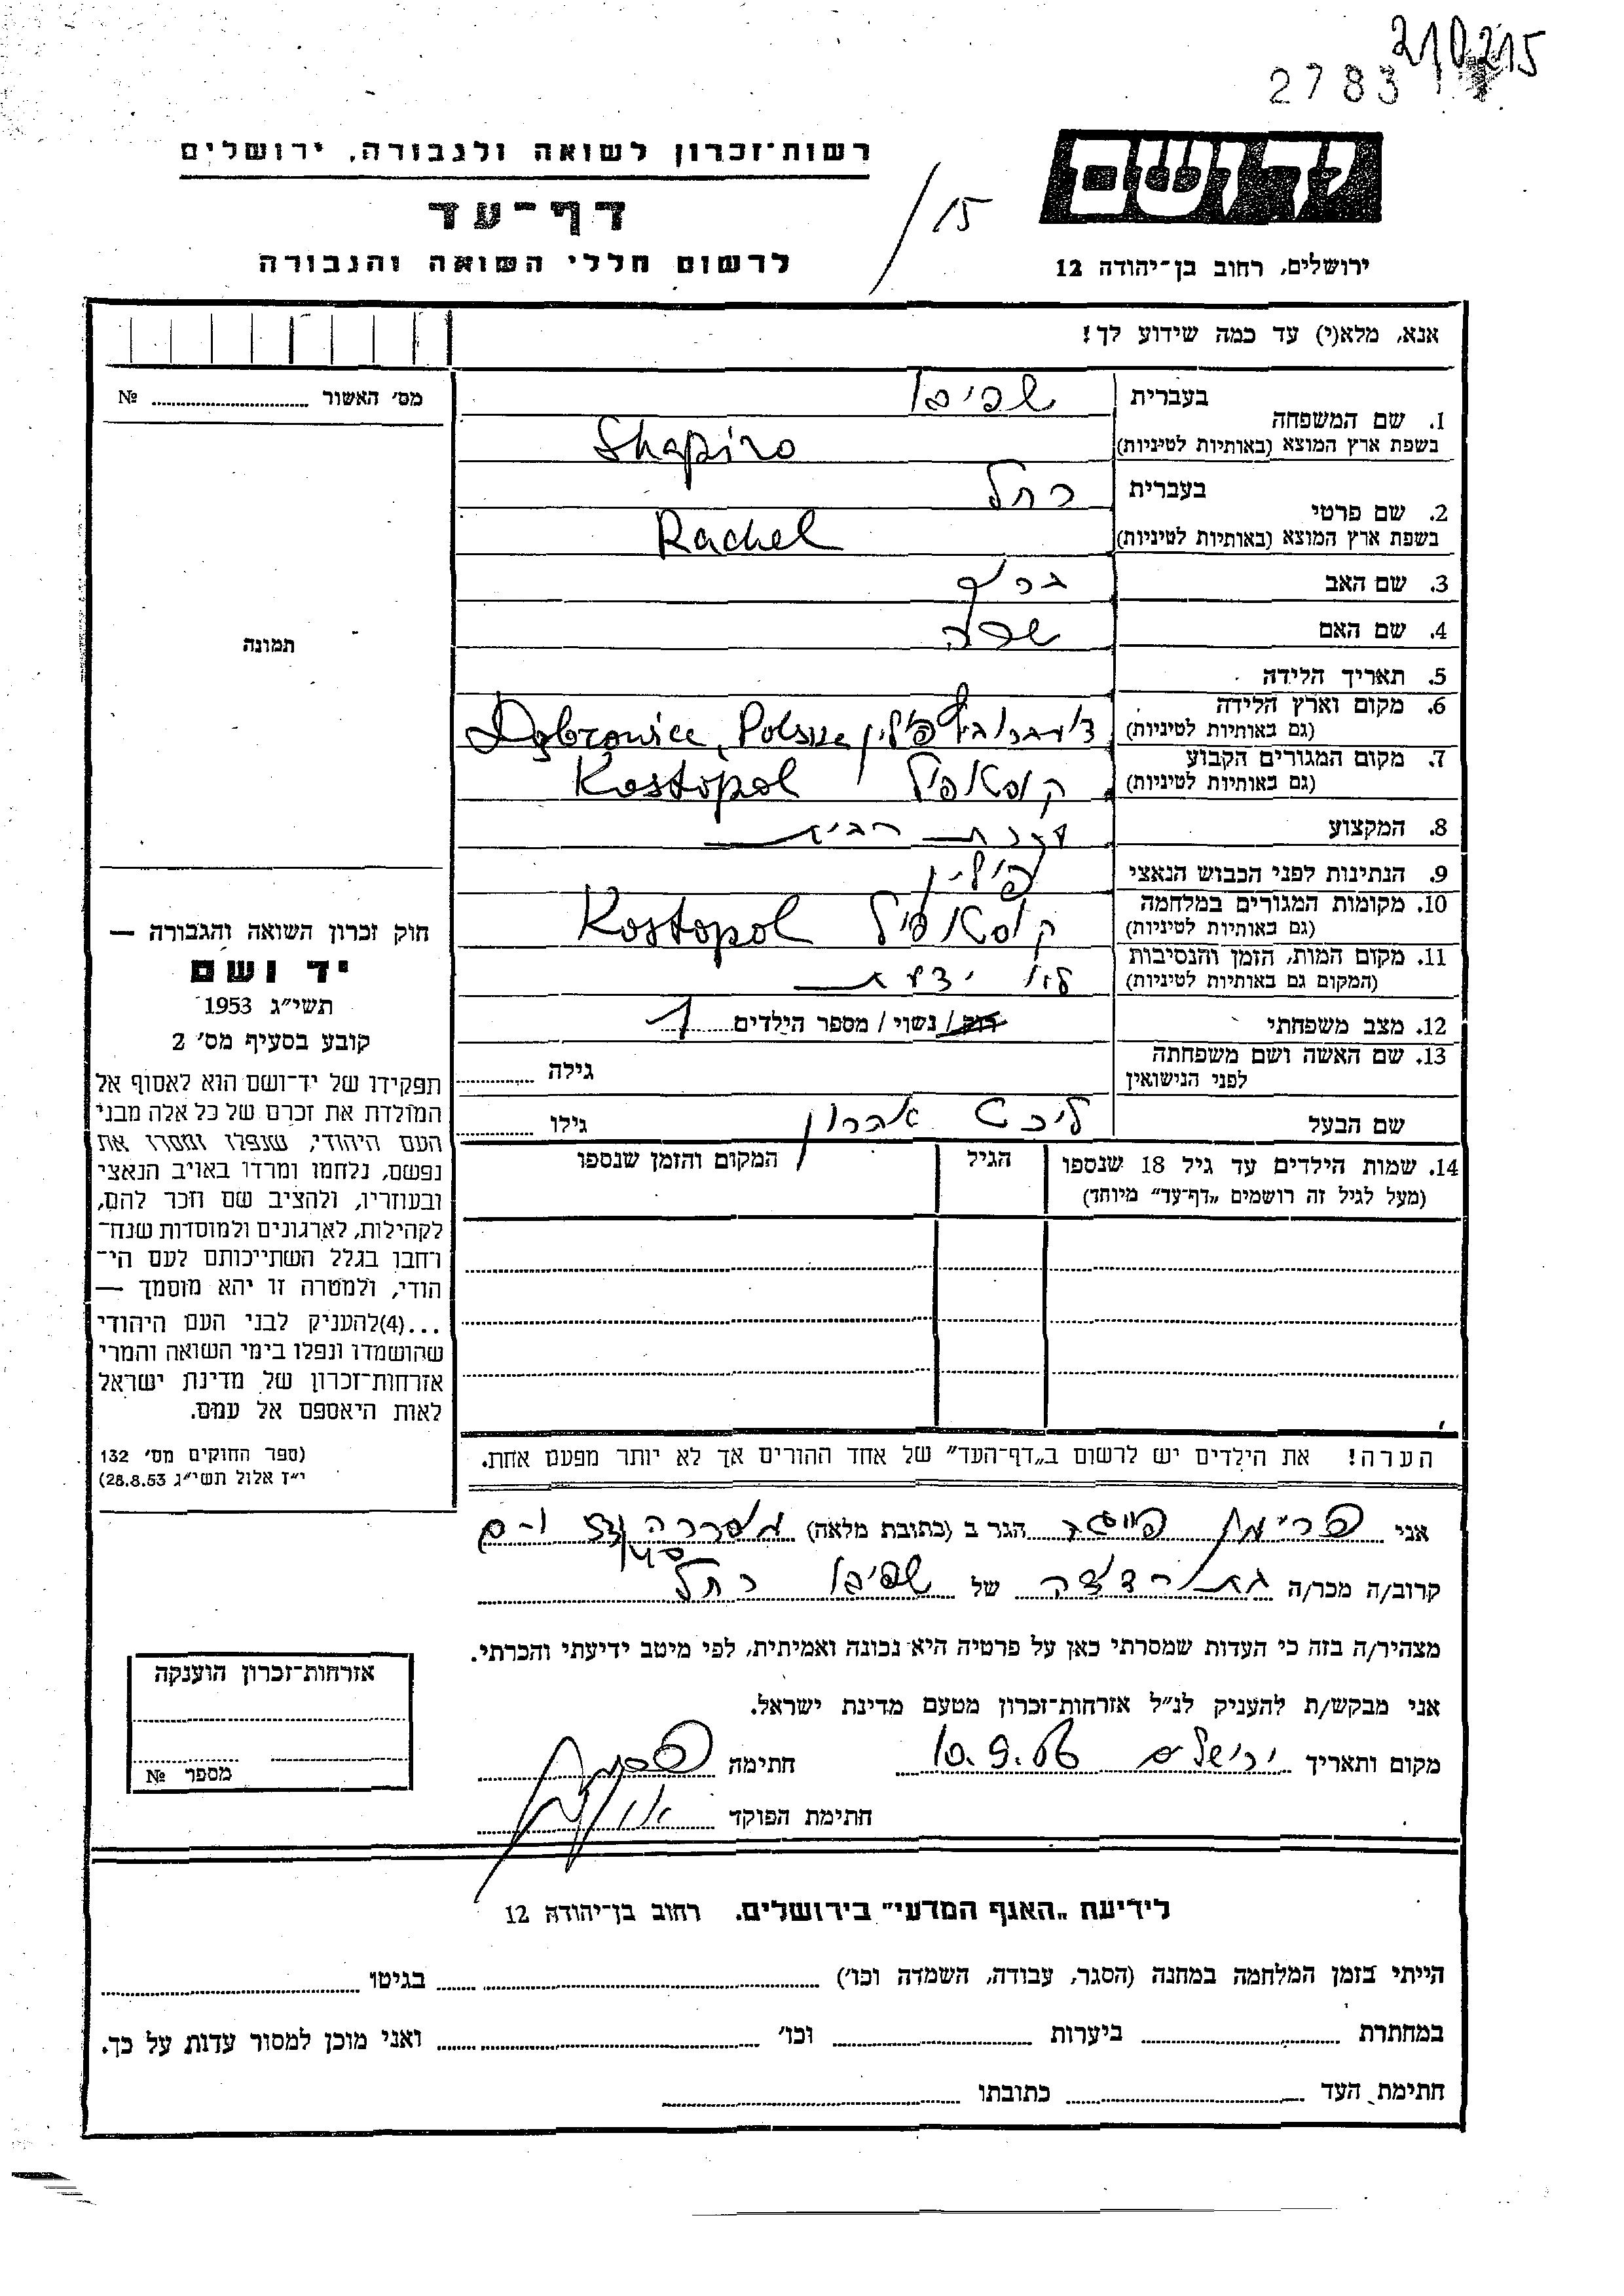 210215
2783
ידושם
רשות־זכרון לשואה ולגבורה, ירושלים
דף־עד
15
לרשום חללי השואה והגבורה
ירושלים, רחוב בן־יהודה 12
אנא, מלא(י) עד כמה שידוע לך!
מס׳ האשור № 
תמונה
1. שם המשפחה
בעברית שפירו
בשפת ארץ המוצא (באותיות לטיניות) Shapiro
2. שם פרטי
בעברית רחל
בשפת ארץ המוצא (באותיות לטיניות) Rachel
3. שם האב
4. שם האם שרה
5. תאריך הלידה
6. מקום וארץ הלידה
(גם באותיות לטיניות) פולין Dąbrowice, Polska
7. מקום המגורים הקבוע
(גם באותיות לטיניות) קוסטופול Kostopol
8. המקצוע עקרת הבית
9. הנתינות לפני הכבוש הנאצי פולין
10. מקומות המגורים במלחמה
(גם באותיות לטיניות) קוסטופול Kostopol
11. מקום המות, הזמן והנסיבות
(המקום גם באותיות לטיניות) לא ידעת
12. מצב משפחתי רוק / נשוי / מספר הילדים 1
13. שם האשה ושם משפחתה
לפני הנישואין גילה
שם הבעל אהרון גילו
14. שמות הילדים עד גיל 18 שנספו
(מעל לגיל זה רושמים „דף־עד” מיוחד)
הגיל
המקום והזמן שנספו
הערה! את הילדים יש לרשום ב„דף־העד” של אחד ההורים אך לא יותר מפעם אחת.
חוק זכרון השואה והגבורה —
יד ושם
תשי״ג 1953
קובע בסעיף מס׳ 2
תפקידו של יד־ושם הוא לאסוף אל
המולדת את זכרם של כל אלה מבני
העם היהודי, שנפלו ומסרו את
נפשם, נלחמו ומרדו באויב הנאצי
ובעוזריו, ולהציב שם וזכר להם,
לקהילות, לארגונים ולמוסדות שנח־
רחבו בגלל השתייכותם לעם הי־
הודי, ולמטרה זו יהא מוסמך —
...(4)להעניק לבני העם היהודי
שהושמדו ונפלו בימי השואה והמרי
אזרחות־זכרון של מדינת ישראל
לאות היאספם אל עמם.
(ספר החוקים מס׳ 132
י״ז אלול תשי״ג 28.8.53)
אני הגר ב (כתובת מלאה)
קרוב/ה מכר/ה של שפירו רחל
מצהיר/ה בזה כי העדות שמסרתי כאן על פרטיה היא נכונה ואמיתית, לפי מיטב ידיעתי והכרתי.
אני מבקש/ת להעניק לנ״ל אזרחות־זכרון מטעם מדינת ישראל.
מקום ותאריך ירושלים 10.9.56 חתימה
חתימת הפוקד
אזרחות־זכרון הוענקה
מספר №
לידיעת „האגף המדעי” בירושלים. רחוב בן־יהודה 12
הייתי בזמן המלחמה במחנה (הסגר, עבודה, השמדה וכו׳) בגיטו
במחתרת ביערות וכו׳ ואני מוכן למסור עדות על כך.
חתימת העד כתובתו